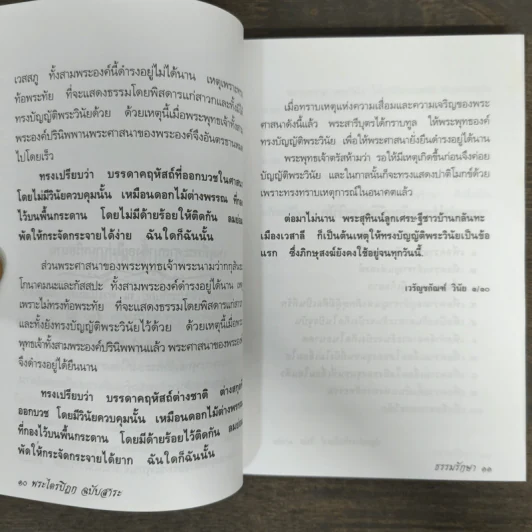 เวสสภู ทั้งสามพระองค์นี้ดำรงอยู่ไม่ได้นาน เหตุเพราะทรง
ท้อพระทัย ที่จะแสดงธรรมโดยพิสดารแก่สาวกและทั้งมิได้
ทรงบัญญัติพระวินัยด้วย ด้วยเหตุนี้เมื่อพระพุทธเจ้าทั้งสาม
พระองค์ปรินิพพานพระศาสนาของพระองค์จึงอันตรธาน
ไปโดยเร็ว
ทรงเปรียบว่า บรรดาคฤหัสถ์ที่ออกบวชในศาสนา
โดยไม่มีวินัยควบคุมนั้น เหมือนดอกไม้ต่างพรรณ ที่กอง
ไว้บนพื้นกระดาน โดยไม่มีด้ายร้อยให้ติดกัน ลมย่อม
พัดให้กระจัดกระจายได้ง่าย ฉันใดก็ฉันนั้น
ส่วนพระศาสนาของพระพุทธเจ้าพระนามว่ากกุสันธะ
โกนาคมนะและกัสสปะ ทั้งสามพระองค์ดำรงอยู่ได้นาน เหตุ
เพราะไม่ทรงท้อพระทัย ที่จะแสดงธรรมโดยพิสดารแก่สาวก
และทั้งยังทรงบัญญัติพระวินัยไว้ด้วย ด้วยเหตุนี้เมื่อพระ
พุทธเจ้าทั้งสามพระองค์ปรินิพพานแล้ว พระศาสนาของพระองค์
จึงดำรงอยู่ได้ยืนนาน
ทรงเปรียบว่า บรรดาคฤหัสถ์ต่างชาติ ต่างสกุล
ออกบวช โดยมีวินัยควบคุมนั้น เหมือนดอกไม้ต่างพรรณ
ที่กองไว้บนพื้นกระดาน โดยมีด้ายร้อยไว้ติดกัน ลมย่อม
พัดให้กระจัดกระจายได้ยาก ฉันใดก็ฉันนั้น
๑๐ พระไตรปิฎก ฉบับสาระ
เมื่อทราบเหตุแห่งความเสื่อมและความเจริญของพระ
ศาสนาดังนี้แล้ว พระสารีบุตรได้กราบทูล ให้พระพุทธองค์
ทรงบัญญัติพระวินัย เพื่อให้พระศาสนายั่งยืนดำรงอยู่ได้นาน
พระพุทธเจ้าตรัสห้ามว่า รอให้มีเหตุเกิดขึ้นก่อนจึงค่อย
บัญญัติพระวินัย และในกาลนั้นก็จะทรงแสดงปาติโมกข์ด้วย
เพราะทรงทราบเหตุการณ์ในอนาคตแล้ว
ต่อมาไม่นาน พระสุทินน์ลูกเศรษฐีชาวบ้านกลันทะ
เมืองเวสาลี ก็เป็นต้นเหตุให้ทรงบัญญัติพระวินัยเป็นข้อ
แรก ซึ่งภิกษุสงฆ์ยังคงใช้อยู่จนทุกวันนี้.
เวรัญชกัณฑ์ วินัย ๑/๑๐
ธรรมรักษา ๑๑